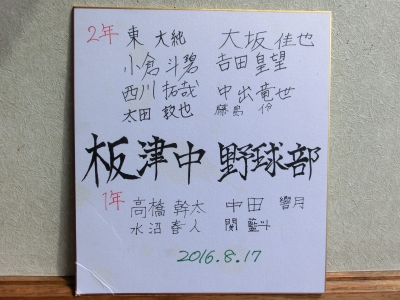 2年 東 大純 大坂 佳也
小倉 斗碧 吉田 皇望
西川 拓哉 中出 竜世
太田 敦也 藤島 伶
板津中 野球部
1年 高橋 幹太 中田 響月
水沼 春人 関 藍斗
2016.8.17